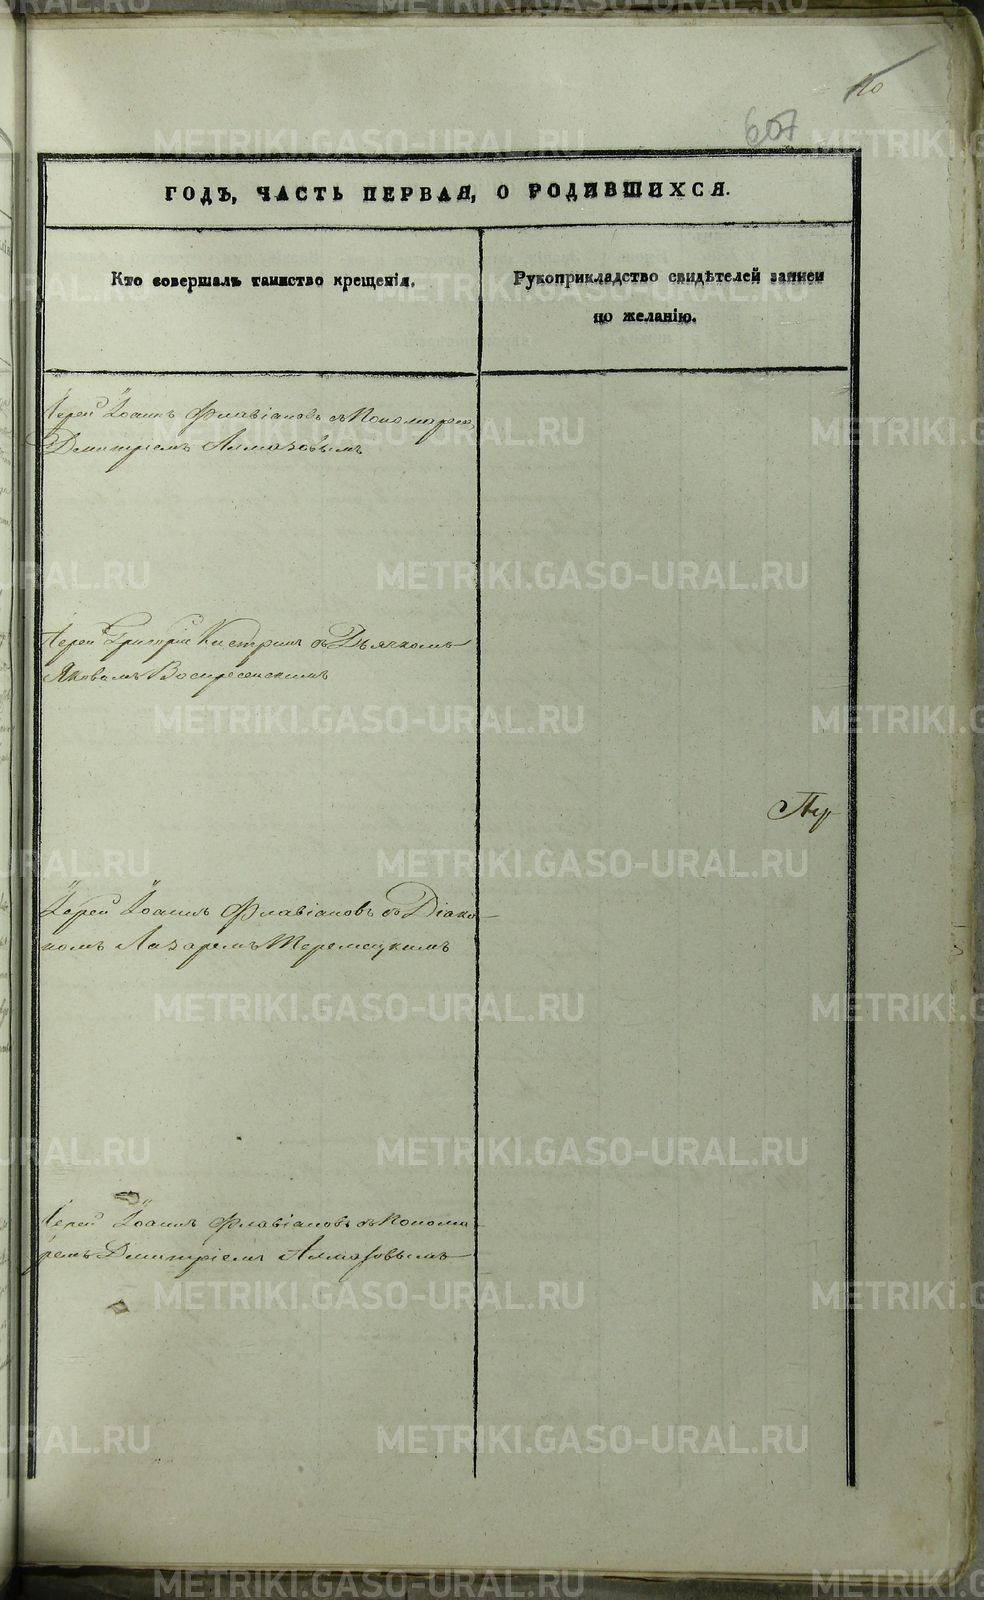 10
607
ГОДЪ, ЧАСТЬ ПЕРВАЯ, О РОДИВШИХСЯ.
Кто совершалъ таинство крещенія.
Рукоприкладство свидѣтелей записи
по желанію.
Іерей Іоаннъ Флавіановъ съ Пономаремъ
Дмитріемъ Алмазовымъ
Іерей Григорій Кастринъ съ Дьячкомъ
Яковомъ Воскресенскимъ
Іерей Іоаннъ Флавіановъ съ Діако-
номъ Лазаремъ Теремецкимъ
Іерей Іоаннъ Флавіановъ съ Понома-
ремъ Дмитріемъ Алмазовымъ
METRIKI.GASO-URAL.RU